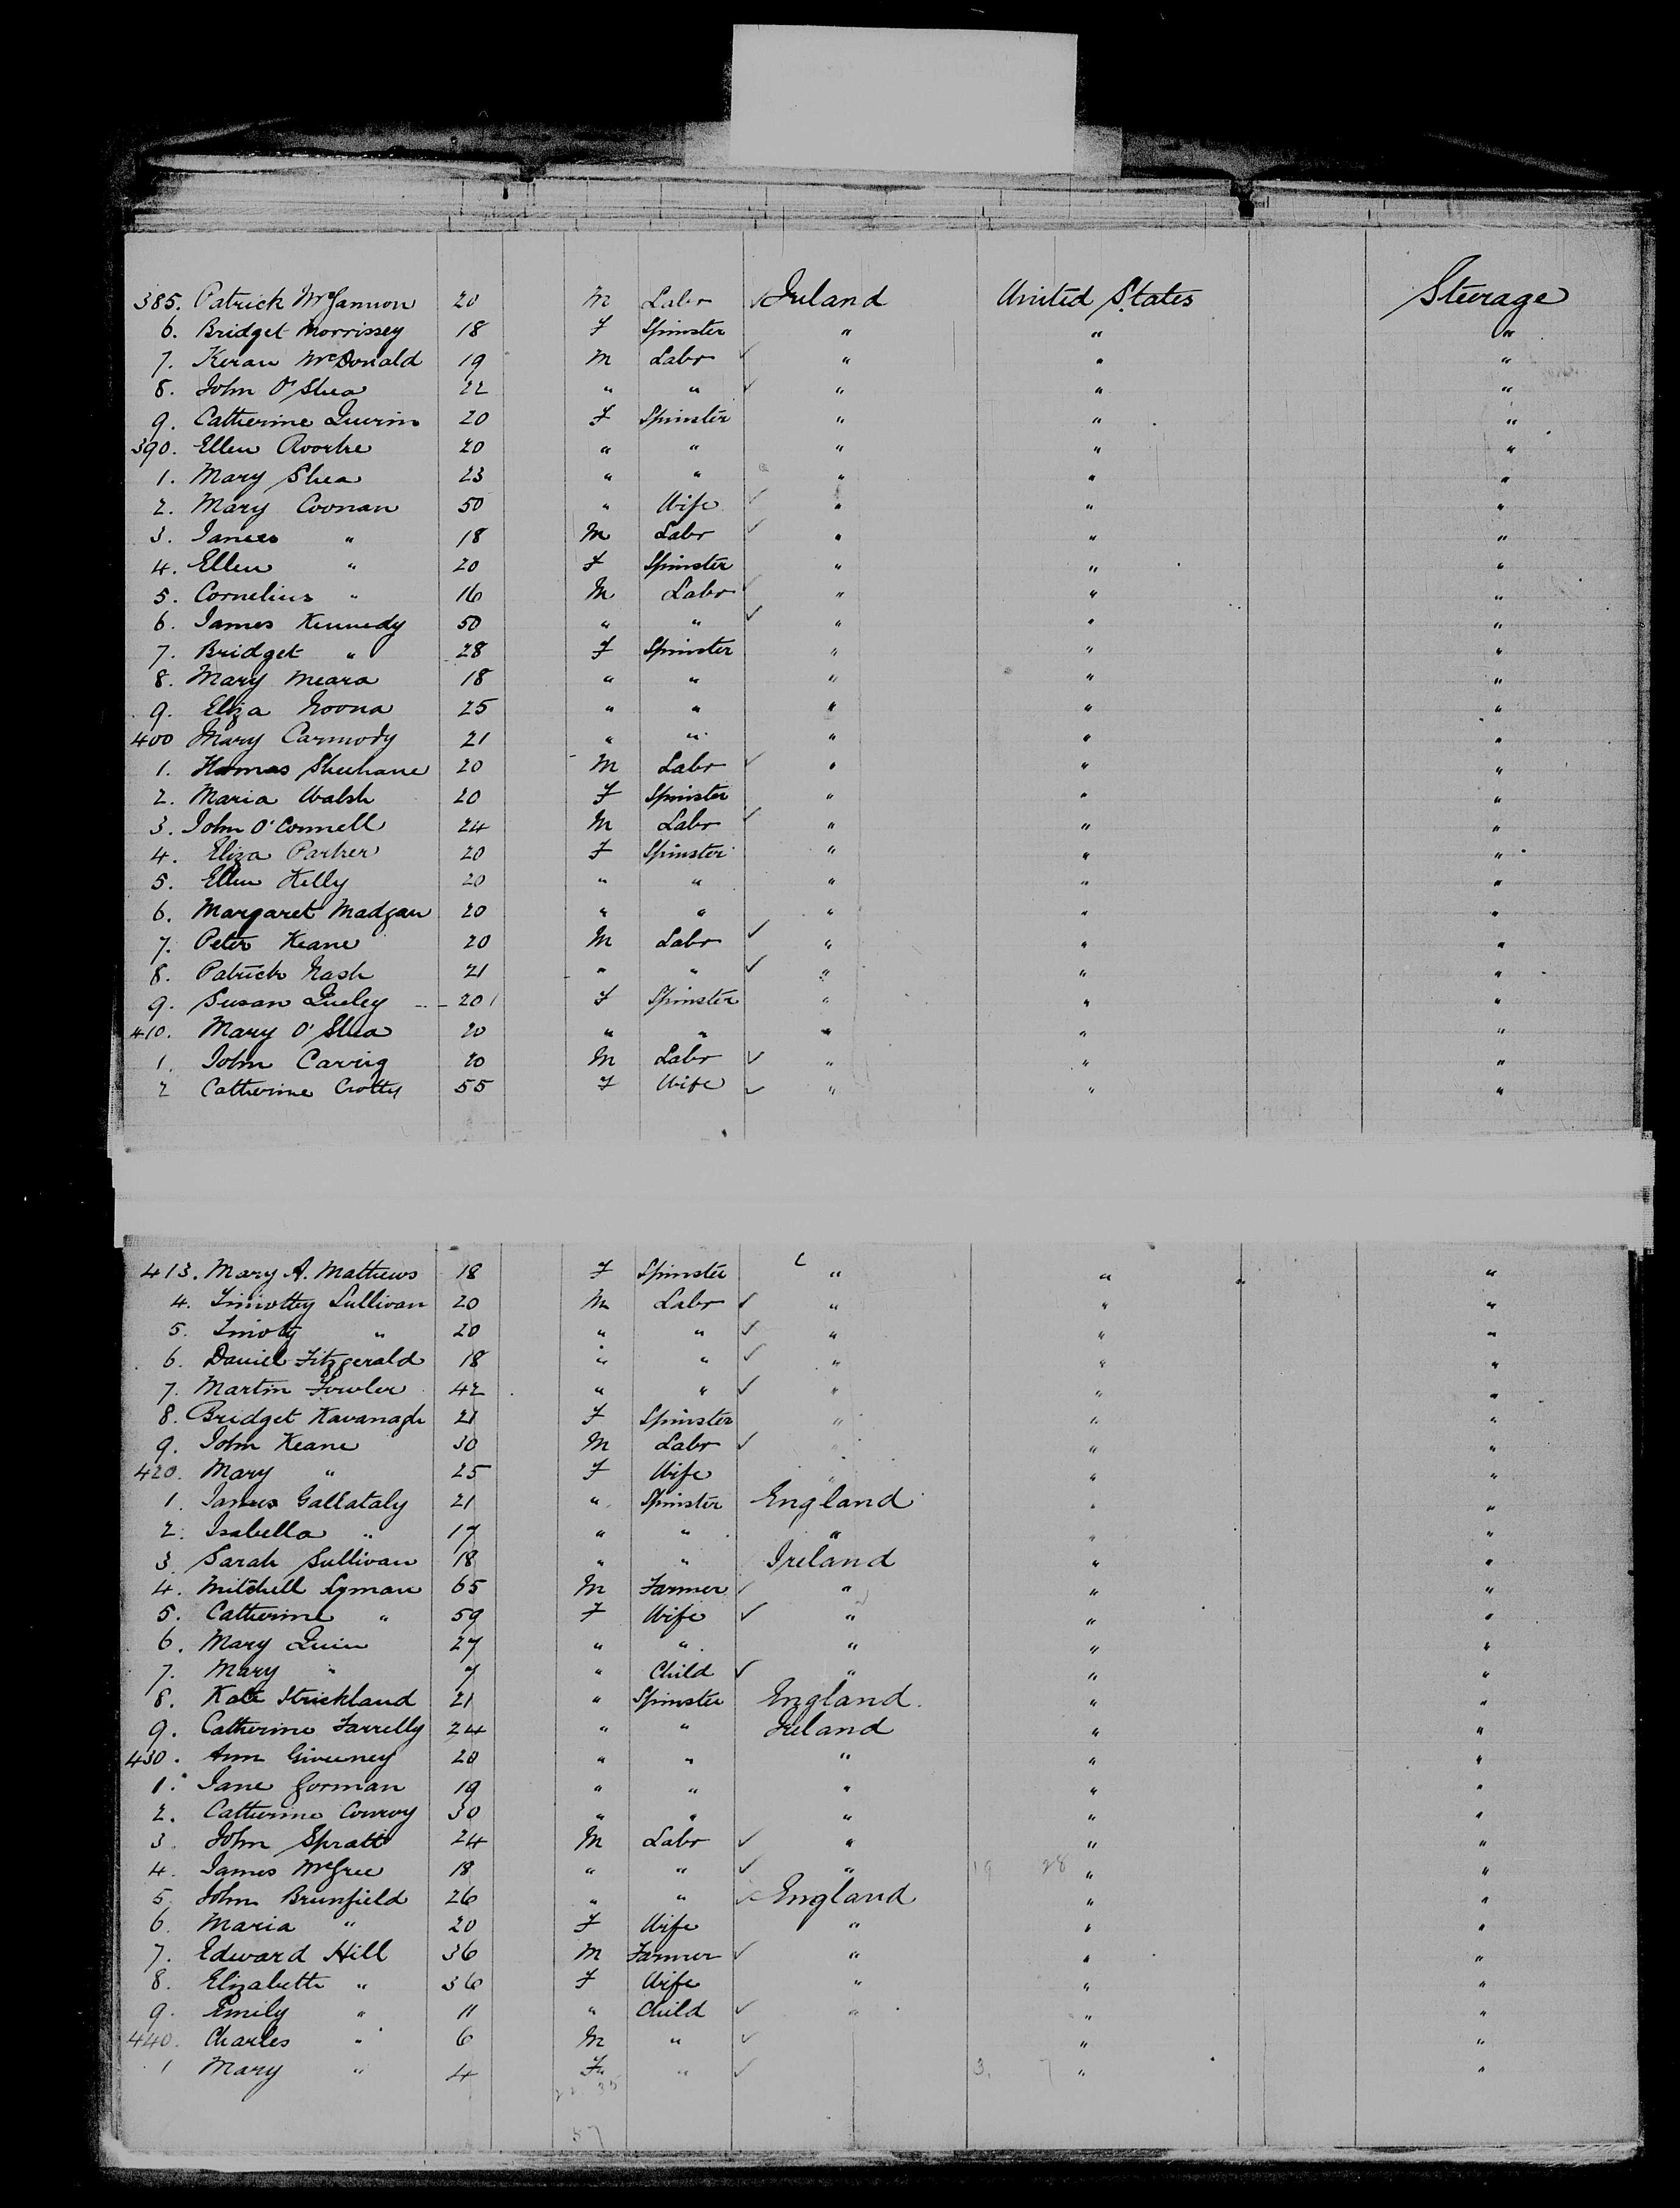 385. Patrick McGannon 20 M Labr ✓ Ireland United States Steerage
6. Bridget Morrissey 18 F Spinster " " "
7. Keran McDonald 19 M Labr ✓ " " "
8. John O'Shea 22 " " ✓ " " "
9. Catherine Quirin 20 F Spinster " " "
390. Ellen Roorke 20 " " " " "
1. Mary Shea 23 " " " " "
2. Mary Coonan 50 " Wife ✓ " " "
3. James " 18 M Labr ✓ " " "
4. Ellen " 20 F Spinster " " "
5. Cornelius " 16 M Labr ✓ " " "
6. James Kennedy 50 " " ✓ " " "
7. Bridget " 28 F Spinster " " "
8. Mary Meara 18 " " " " "
9. Eliza Noona 25 " " " " "
400 Mary Carmody 21 " " " " "
1. Thomas Sheehane 20 M Labr ✓ " " "
2. Maria Walsh 20 F Spinster " " "
3. John O'Connell 24 M Labr ✓ " " "
4. Eliza Parker 20 F Spinster " " "
5. Ellen Kelly 20 " " " " "
6. Margaret Madgan 20 " " " " "
7. Peter Keane 20 M Labr ✓ " " "
8. Patrick Nash 21 " " ✓ " " "
9. Susan Queley 20 F Spinster " " "
410. Mary O'Shea 20 " " " " "
1. John Carrig 20 M Labr ✓ " " "
2 Catherine Crotty 55 F Wife ✓ " " "
413. Mary A. Mathews 18 F Spinster " " "
4. Timothy Sullivan 20 M Labr ✓ " " "
5. Timoty " 20 " " ✓ " " "
6. Daniel Fitzgerald 18 " " ✓ " " "
7. Martin Fowler 42 " " ✓ " " "
8. Bridget Kavanagh 21 F Spinster " " "
9. John Keane 30 M Labr ✓ " " "
420. Mary " 25 F Wife " " "
1. James Gallataly 21 " Spinster England " "
2. Isabella " 17 " " " " "
3 Sarah Sullivan 18 " " Ireland " "
4. Mitchell Lyman 65 M Farmer ✓ " " "
5. Catherine " 59 F Wife ✓ " " "
6. Mary Quin 27 " " " " "
7. Mary " 7 " Child ✓ " " "
8. Kate Strickland 21 " Spinster England " "
9. Catherine Farrelly 24 " " Ireland " "
430. Ann Giveney 20 " " " " "
1. Jane Gorman 19 " " " " "
2. Catherine Conroy 30 " " " " "
3 John Spratt 24 M Labr ✓ " " "
4. James McGree 18 " " ✓ " 19 28 " "
5 John Brunfield 26 " " ✓ England " "
6. Maria " 20 F Wife " " "
7. Edward Hill 36 M Farmer ✓ " " "
8. Elizabeth " 36 F Wife " " "
9. Emily " 11 " Child ✓ " " "
440. Charles " 6 M " ✓ " "
1 Mary " 4 F " ✓ 3. 7 " "
22 35
57